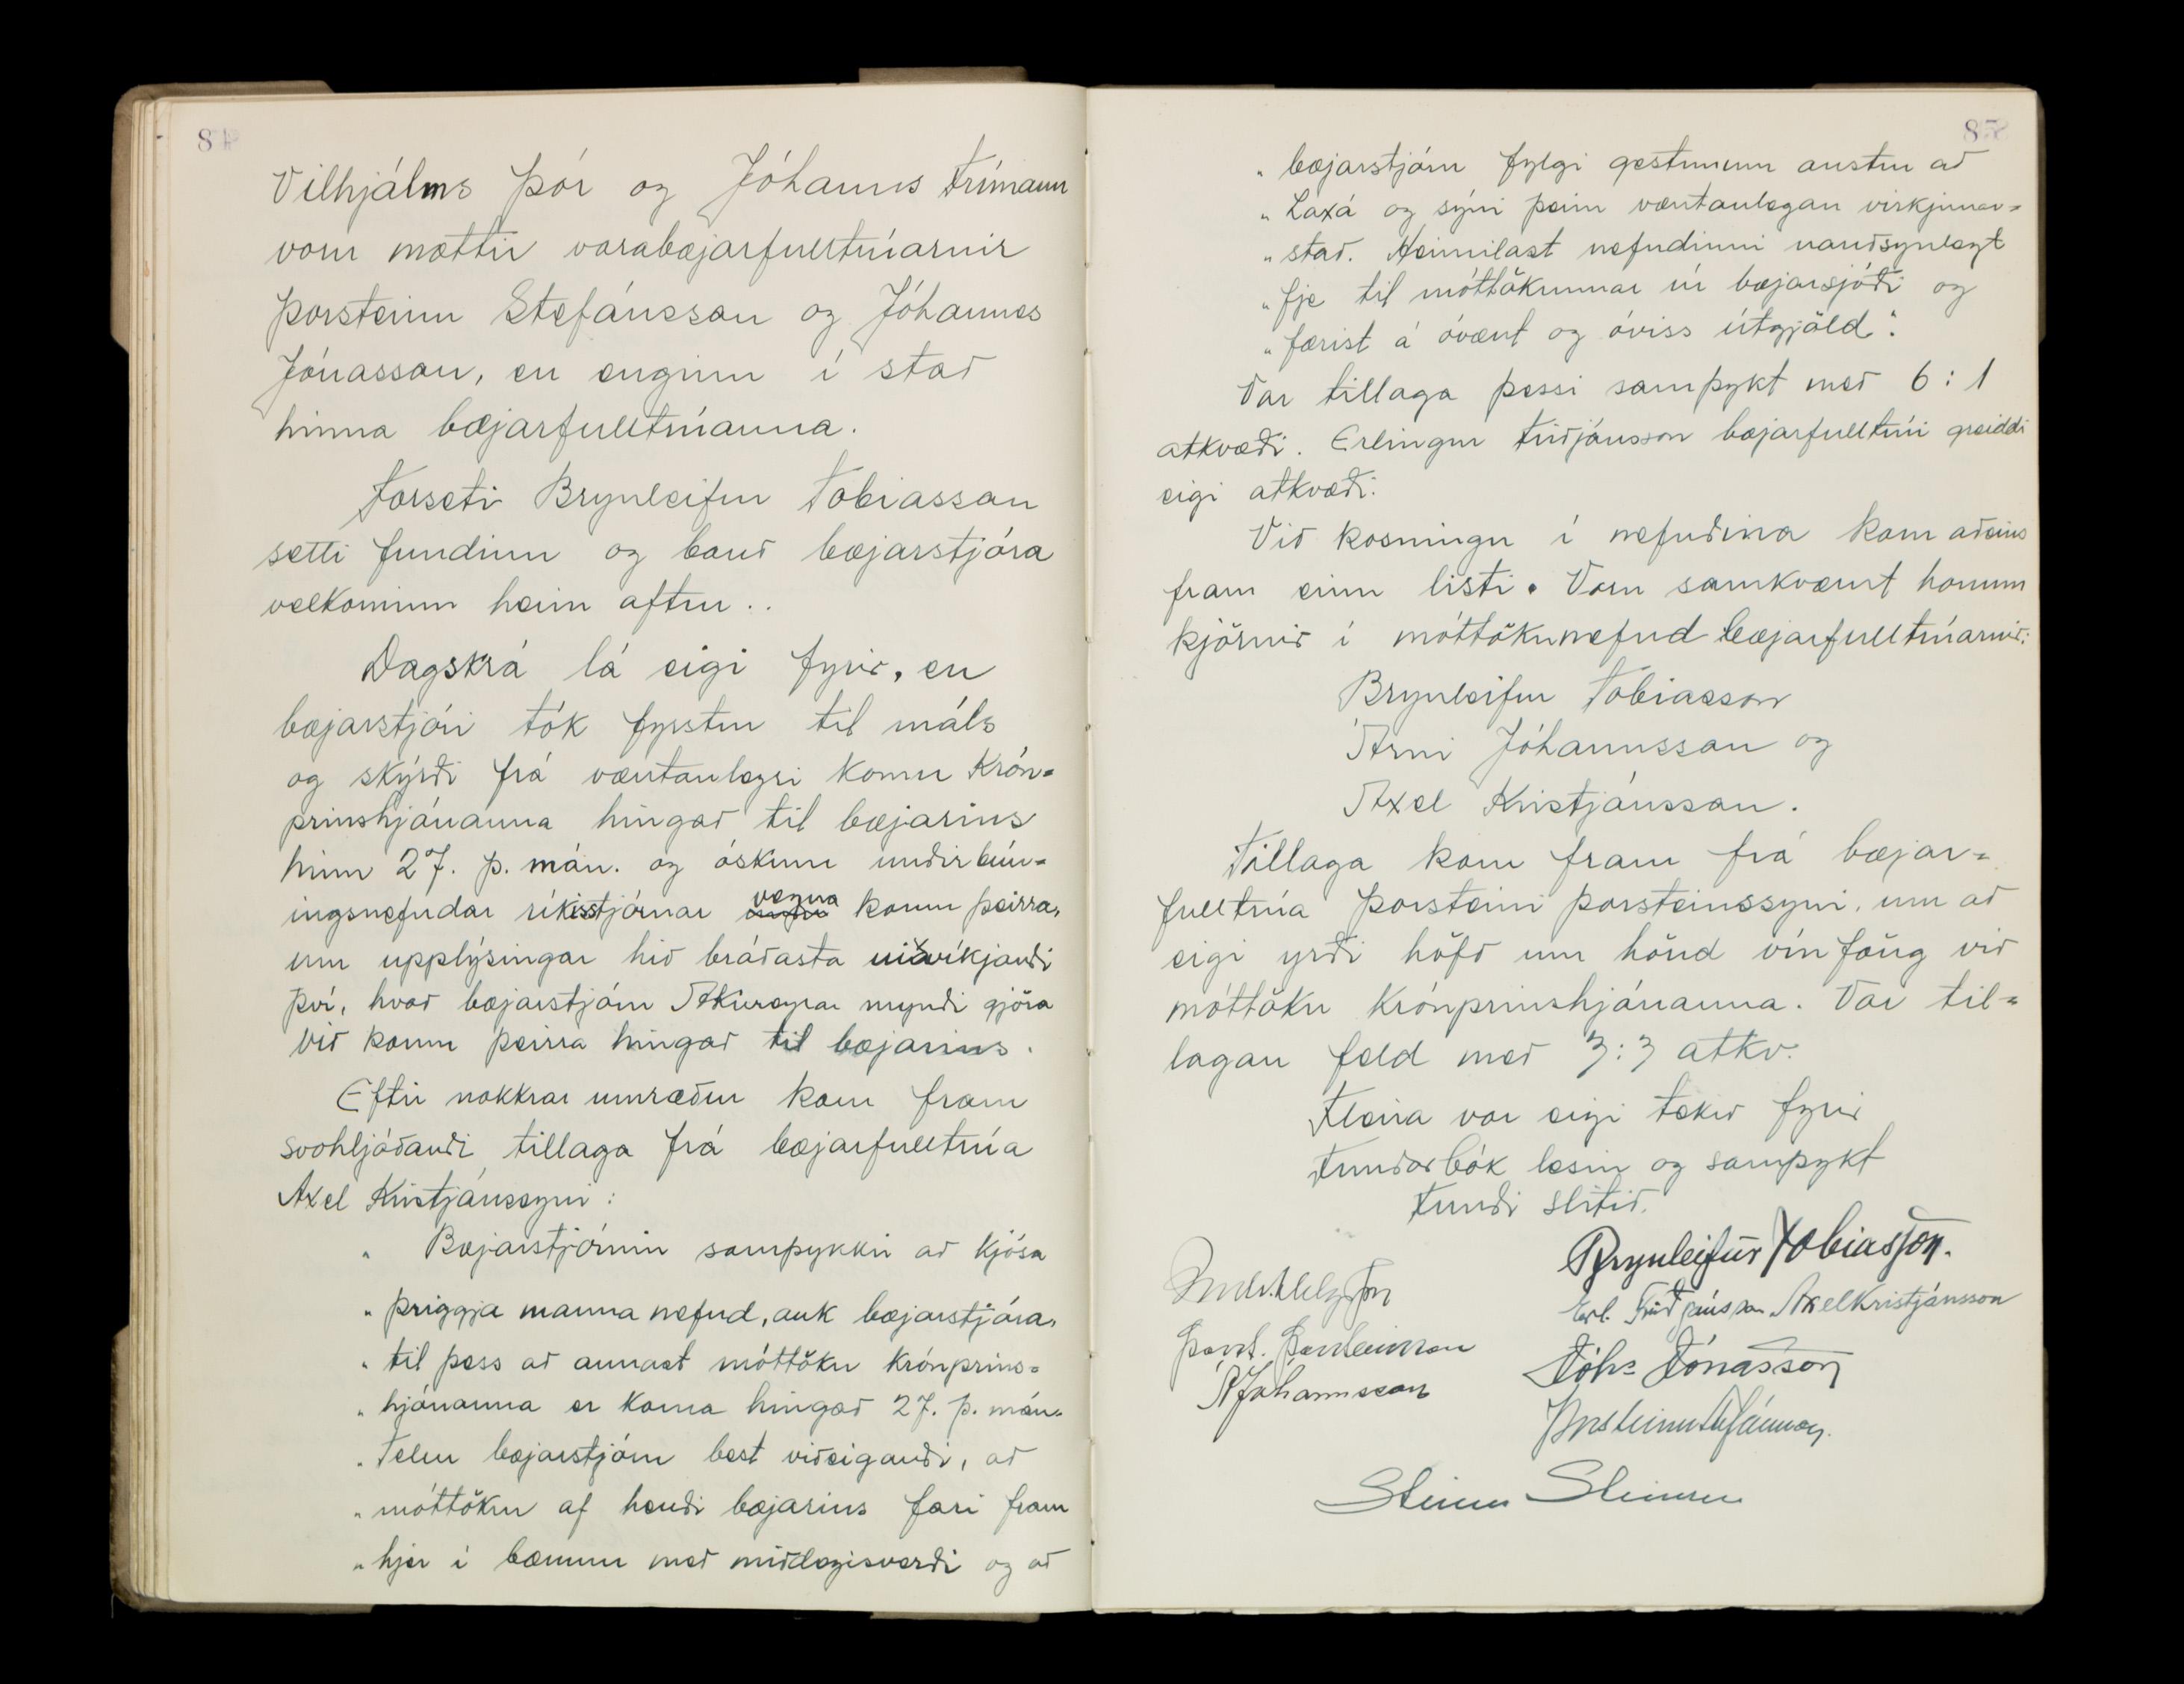 84
Vilhjálms Þór og Jóhanns Frímann
voru mættir varabæjarfulltrúarnir
Þorsteinn Stefánsson og Jóhannes
Jónasson, en enginn í stað
hinna bæjarfulltrúanna.
Forseti Brynleifur Tobiasson
setti fundinn og bauð bæjarstjóra
velkominn heim aftur..
Dagskrá lá eigi fyrir, en
bæjarstjóri tók fyrstur til máls
og skýrði frá væntanlegri komu Krón-
prinshjónanna hingað til bæjarins
hinn 27. þ. mán. og óskum undirbún-
ingsnefndar ríkisstjórnar vegna komu þeirra,
um upplýsingar hið bráðasta viðvíkjandi
því, hvað bæjarstjórn Akureyrar myndi gjöra
við komu þeirra hingað til bæjarins.
Eftir nokkrar umræður kom fram
svohljóðandi tillaga frá bæjarfulltrúa
Axel Kristjánssyni:
„ Bæjarstjórnin samþykkir að kjósa
„ þriggja manna nefnd, auk bæjarstjóra,
„ til þess að annast móttöku krónprins-
„ hjónanna er koma hingað 27. þ. mán.
„ Telur bæjarstjórn best viðeigandi, að
„ móttökur af hendi bæjarins fari fram
„ hjer í bænum með miðdegisverði og að
85
„ bæjarstjórn fylgi gestunum austur að
„ Laxá og sýni þeim væntanlegan virkjunar-
„ stað. Heimilast nefndinni nauðsynlegt
„ fje til móttökunnar úr bæjarsjóði og
„ færist á óvænt og óviss útgjöld“.
Var tillaga þessi samþykt með 6 : 1
atkvæði. Erlingur Friðjónsson bæjarfulltrúi greiddi
eigi atkvæði.
Við kosningu í nefndina kom aðeins
fram einn listi. Voru samkvæmt honum
kjörnir í móttökunefnd bæjarfulltrúarnir:
Brynleifur Tobiasson
Árni Jóhannsson og
Axel Kristjánsson.
Tillaga kom fram frá bæjar-
fulltrúa Þorsteini Þorsteinssyni, um að
eigi yrði höfð um hönd vínföng við
móttöku Krónprinshjónanna. Var til-
lagan feld með 3:3 atkv.
Fleira var eigi tekið fyrir
Fundarbók lesin og samþykt
Fundi slitið.
Brynleifur Tobiasson.
Erl. Friðjónsson Axel Kristjánsson
Þorst. Þorsteinsson
Jóhs Jónasson
ÁJóhannsson
Þorsteinn Stefánsson.
Steinn Steinsen